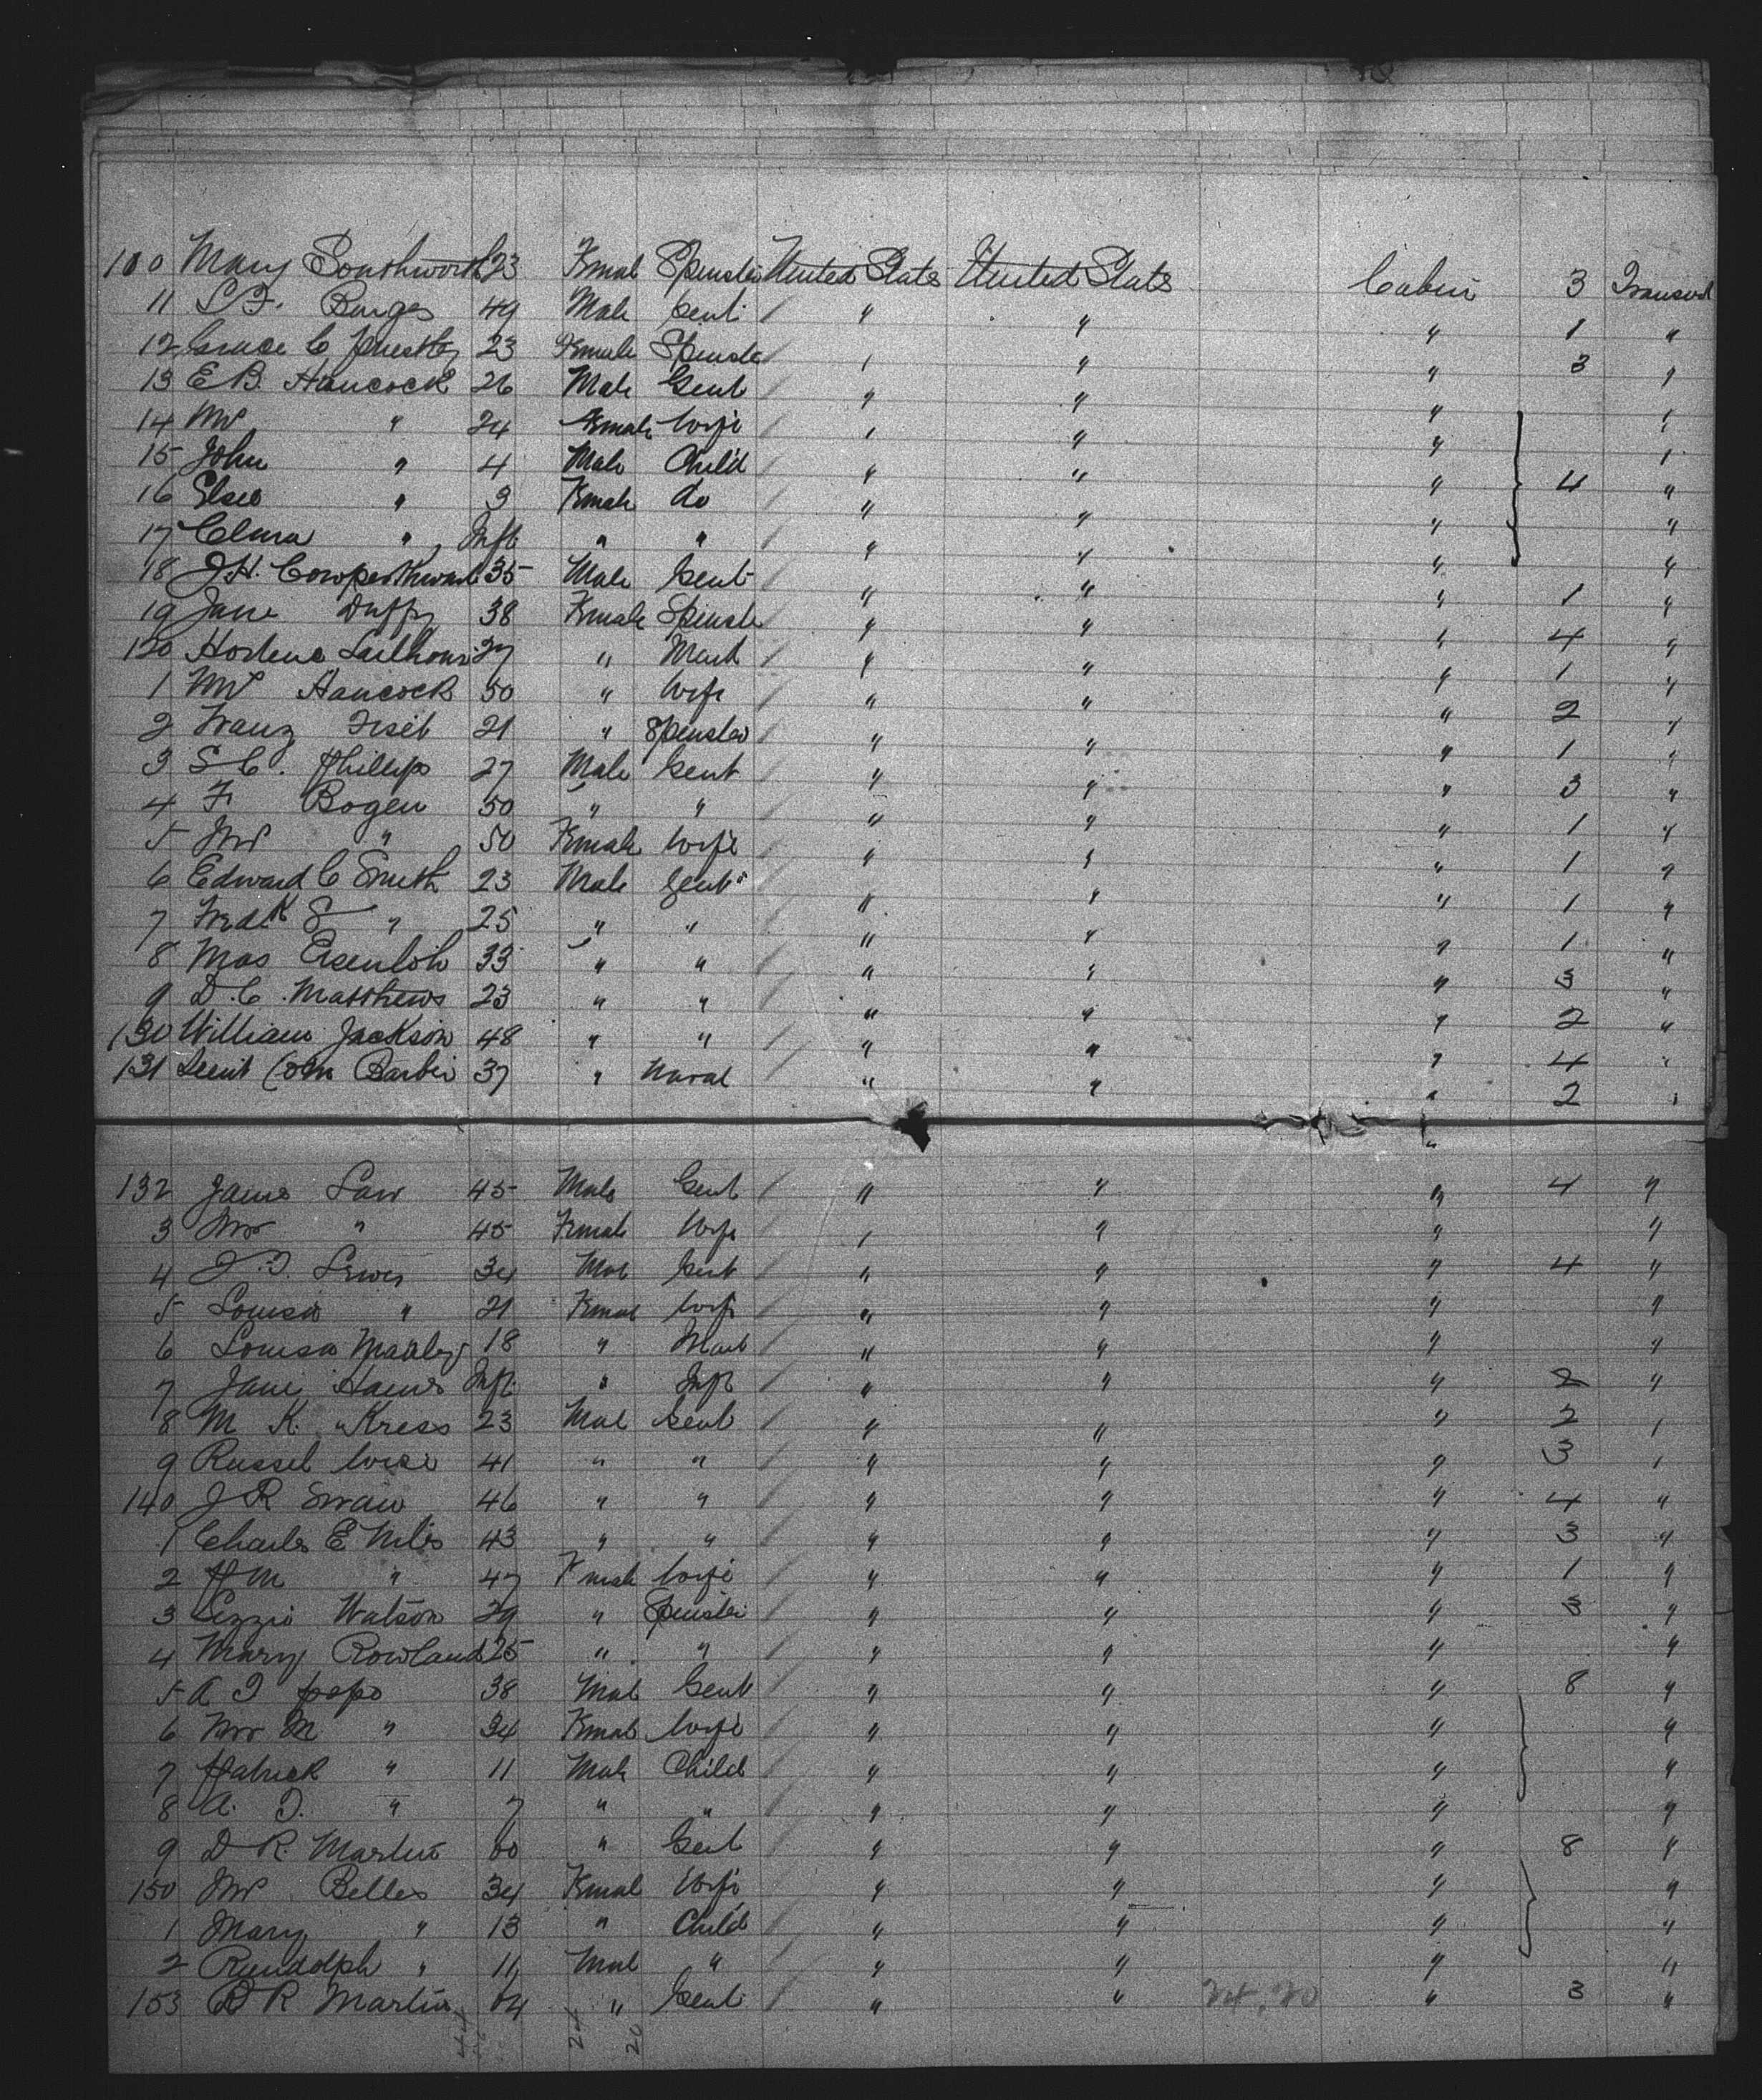 110 Mary Southworth 23 Female Spinster United States United States Cabin 3 Transcd
11 S F. Burges 49 Male Gent / " " " 1 "
12 Grace C 23 Female Spinste / " " " 3 "
13 E B. Hancock 26 Male Gent / " " " "
14 Mrs " 24 Female Wife / " " " "
15 John " 4 Male Child / " " " 4 "
16 Elsie " 3 Female do / " " " "
17 " Inft " " / " " " "
18 J.H. Cowperthwait 35 Male Gent / " " " 1 "
19 Jane Duffy 38 Female Spinste / " " " 4 "
120 Hortense 27 " Maid / " " " 1 "
1 Mrs Hancock 50 " Wife / " " " 2 "
2 Franz 21 " Spinster / " " " 1 "
3 S C. Phillips 27 Male Gent / " " " 3 "
4 F Bogen 50 " " / " " " 1 "
5 Mrs " 50 Female Wife / " " " 1 "
6 Edward C Smith 23 Male Gent / " " " 1 "
7 Fredk S " 25 " " / " " " 1 "
8 Max Eisenloh 33 " " / " " " 3 "
9 D. C. Matthews 23 " " / " " " 2 "
130 William Jackson 48 " " / " " " 4 "
131 Lieut Com Barber 37 " Naval " " " 2 "
132 James Law 45 Male Gent / " " " 4 "
3 Mrs " 45 Female Wife / " " " "
4 J. T. Lewis 34 Male Gent / " " " 4 "
5 Louisa " 21 Female Wife / " " " "
6 Louisa Manley 18 " Maid / " " " "
7 Jane Haines Inft. " Inft / " " " 2 "
8 M K. Kress 23 Male Gent / " " " 2 "
9 Russel Wise 41 " " / " " " 3 "
140 J R Swaw 46 " " / " " " 4 "
1 Charles E Niles 43 " " / " " " 3 "
2 H M " 47 Female Wife / " " " 1 "
3 Lizzie Watson 29 " Spinster / " " " 3 "
4 Mary Rowland 25 " " / " " " "
5 A T pope 38 Male Gent / " " " 8 "
6 Mrs M " 34 Female Wife / " " " "
7 Patrick " 11 Male Child / " " " "
8 A. T. " 7 " " / " " " "
9 D R. Martin 60 " Gent / " " " 8 "
150 Mrs Belles 34 Female Wife / " " " "
1 Mary " 13 " Child / " " " "
2 Rundolph " 11 Male " / " " " "
153 D R Martin 64 " Gent / " " 24,20 " 3 "
44 24 20